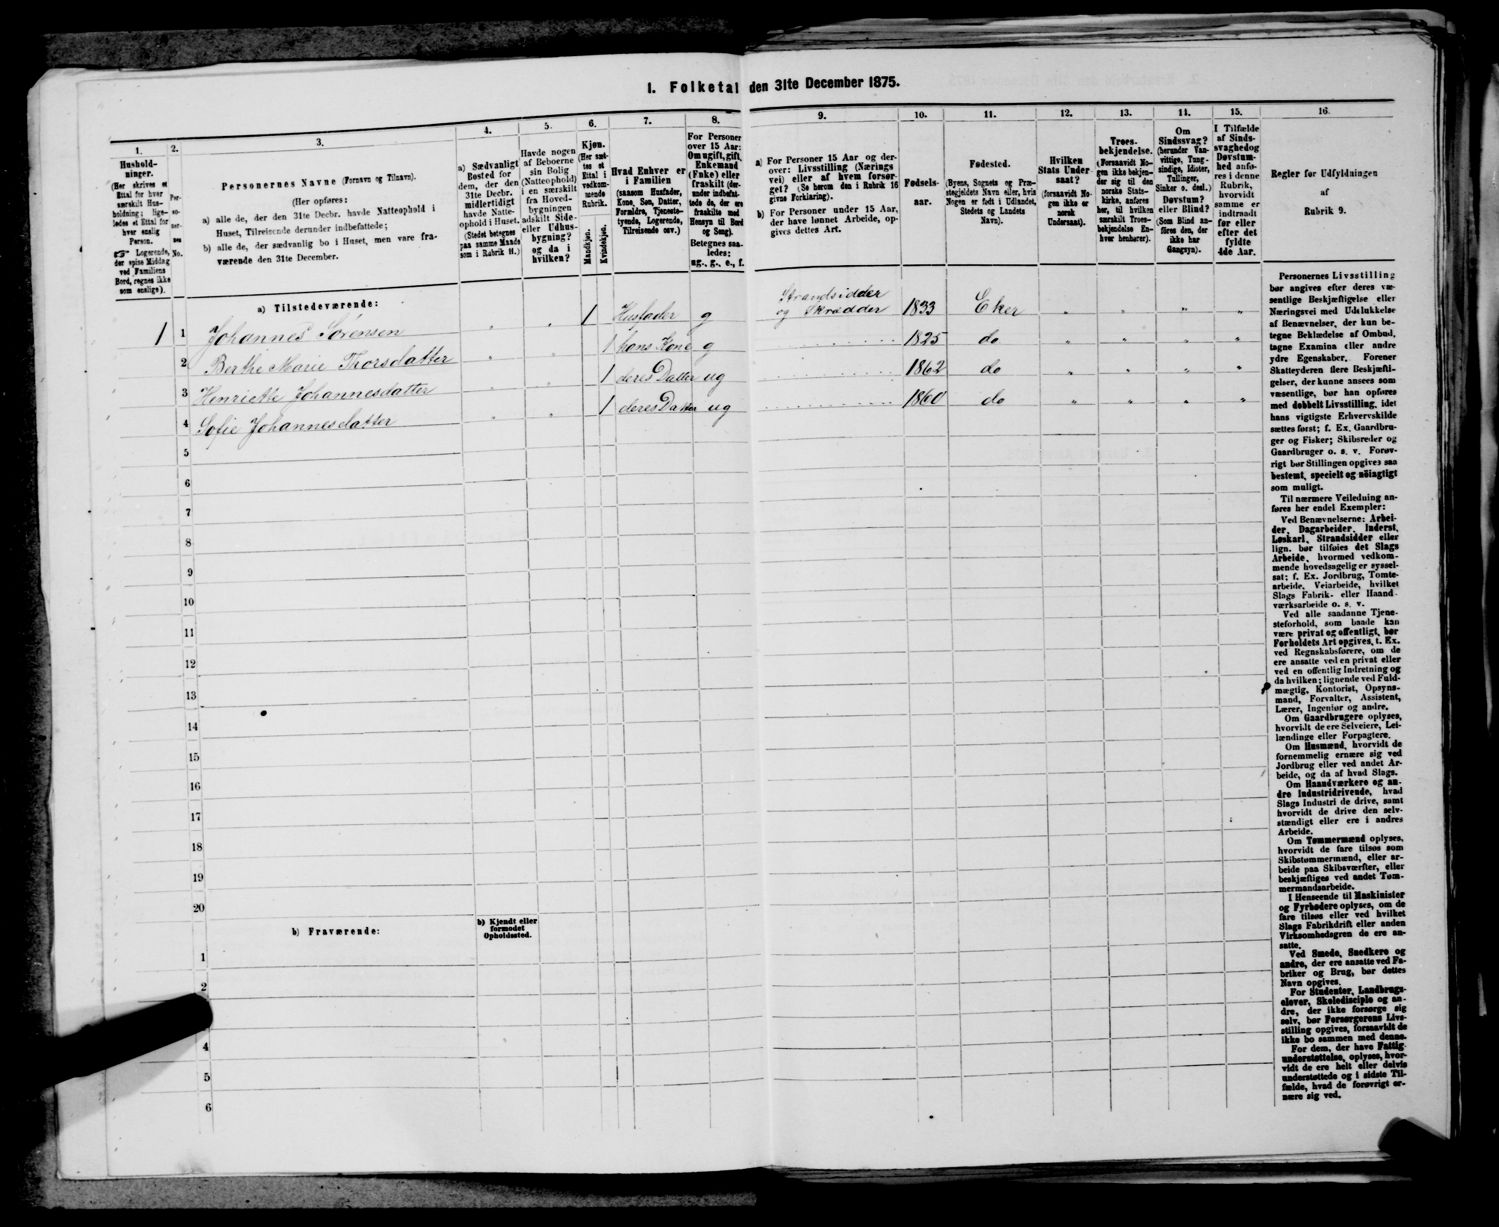 I. Folketal den 31te December 1875.
1.
2.
3.
4.
5.
6.
7.
8.
9.
10.
11.
12.
13.
14.
15.
16.
Hushold-
ninger.
(Her skrives et
Ettal for hver
særskilt Hus-
holdning; lige-
ledes et Ettal for
hver enslig
Person.
☞ Logerende,
der spise Middag
ved Familiens
Bord, regnes ikke
som enslige).
Per-
so-
ner-
nes
No.
Personernes Navne (Fornavn og Tilnavn).
(Her opføres:
a) alle de, der den 31te Decbr. havde Natteophold i
Huset, Tilreisende derunder indbefattede;
b) alle de, der sædvanlig bo i Huset, men vare fra-
værende den 31te December.
a) Sædvanligt
Bosted for
dem, der den
31te Decbr.
midlertidigt
havde Natte-
ophold i Huset.
(Stedet betegnes
paa samme Maade
som i Rubrik 11.)
Havde nogen
af Beboerne
sin Bolig
(Natteophold)
i en særskilt
fra Hoved-
bygningen
adskilt Side-
eller Udhus-
bygning?
og da i
hvilken?
Kjøn.
(Her sæt-
tes et
Ettal i
vedkom-
mende
Rubrik.
Mandkjøn.
Kvindekjøn.
Hvad Enhver er
i Familien
(saasom Husfader,
Kone, Søn, Datter,
Forældre, Tjeneste-
tyende, Logerende,
Tilreisende osv.)
For Personer
over 15 Aar:
Om ugift, gift,
Enkemand
(Enke) eller
fraskilt (der-
under indbefat-
tede de, der ere
fraskilte med
Hensyn til Bord
og Seng).
Betegnes saa-
ledes:
ug., g., e., f.
a) For Personer 15 Aar og der-
over: Livsstilling (Nærings
vei) eller af hvem forsør-
get? (Se herom den i Rubrik 16
givne Forklaring).
b) For Personer under 15 Aar,
der have lønnet Arbeide, op-
gives dettes Art.
Fødsels-
aar.
Fødested.
(Byens, Sognets og Præ-
stegjeldets Navn eller, hvis
Nogen er født i Udlandet,
Stedets og Landets
Navn).
Hvilken
Stats Under-
saat?
(forsaavidt No-
gen ikke er
norsk
Undersaat).
Troes-
bekjendelse.
(Forsaavidt No-
gen ikke bekjen-
der sig til den
norske Stats-
kirke, anføres
her, til hvilken
særskilt Troes-
bekjendelse En-
hver henhører).
Om
Sindssvag?
(herunder Van-
vittige, Tung-
sindige, Idioter,
Tullinger,
Sinker o. desl.)
Døvstum?
eller Blind?
(Som Blind an-
føres den, der
ikke har
Gangsyn).
I Tilfælde
af Sinds-
svaghed og
Døvstum-
hed anfø-
res i denne
Rubrik,
hvorvidt
samme er
indtraadt
før eller
efter det
fyldte
4de Aar.
Regler for Udfyldningen
af
Rubrik 9.
a) Tilstedeværende:
1 1 Johannes Sørensen " " 1 Husfader g Strandsidder
og Skrædder 1833 Eker " " " "
2 Berthe Marie Thorsdatter " " 1 hans Kone g 1825 do " " " "
3 Henriette Johannesdatter " " 1 deres Datter ug 1862 do " " " "
4 Sofie Johannesdatter " " 1 deres Datter ug 1860 do " " " "
5
6
7
8
9
10
11
12
13
14
15
16
17
18
19
20
b) Fraværende:
b) Kjendt eller
formodet
Opholdssted.
1
2
4
5
6
Personernes Livsstilling
bør angives efter deres væ-
sentlige Beskjæftigelse eller
Næringsvei med Udelukkelse
af Benævnelser, der kun be-
tegne Beklædelse af Ombud,
tagne Examina eller andre
ydre Egenskaber. Forener
Skatteyderen flere Beskjæfti-
gelser, der kunne ansees som
væsentlige, bør han opføres
med dobbelt Livsstilling, idet
hans vigtigste Erhvervskilde
sættes først; f. Ex. Gaardbru-
ger og Fisker; Skibsreder og
Gaardbruger o. s. v. Forøv-
rigt bør Stillingen opgives saa
bestemt, specielt og nøiagtigt
som muligt.
Til nærmere Veiledning an-
føres her endel Exempler:
Ved Benævnelserne: Arbei-
der, Dagarbeider, Inderst,
Løskarl, Strandsidder eller
lign. bør tilføies det Slags
Arbeide, hvormed vedkom-
mende hovedsagelig er syssel-
sat; f. Ex. Jordbrug, Tomte-
arbeide, Veiarbeide, hvilket
Slags Fabrik- eller Haand-
værksarbeide o. s. v.
Ved alle saadanne Tjene-
steforhold, som baade kan
være privat og offentligt, bør
Forholdets Art opgives, t. Ex.
ved Regnskabsførere, om de
ere ansatte ved en privat eller
ved en offentlig Indretning og
da hvilken; lignende ved Fuld-
mægtig, Kontorist, Opsyns-
mand, Forvalter, Assistent,
Lærer, Ingeniør og andre.
Om Gaardbrugere oplyses,
hvorvidt de ere Selveiere, Lei-
lændinge eller Forpagtere.
Om Husmænd, hvorvidt de
fornemmelig ernære sig ved
Jordbrug eller ved andet Ar-
beide, og da af hvad Slags.
Om Haandværkere og an-
dre Industridrivende, hvad
Slags Industri de drive, samt
hvorvidt de drive den selv-
stændigt eller ere i andres
Arbeide.
Om Tømmermænd oplyses,
hvorvidt de fare tilsøs som
Skibstømmermænd, eller ar-
beide paa Skibsværfter, eller
beskjæftiges ved andet Tøm-
mermandsarbeide.
I Henseende til Maskinister
og Fyrbødere oplyses, om de
fare tilsøs eller ved hvilket
Slags Fabrikdrift eller anden
Virksomhedsgren de ere an-
satte.
Ved Smede, Snedkere og
andre, der ere ansatte ved Fa-
briker og Brug, bør dettes
Navn opgives.
For Studenter, Landbrugs-
elever, Skoledisciple og an-
dre, der ikke forsørge sig
selv, bør Forsørgerens Livs-
stilling opgives, forsaavidt de
ikke bo sammen med denne.
For dem, der have Fattig-
understøttelse, oplyses, hvor-
vidt de ere helt eller delvis
understøttede og i sidste Til-
fælde, hvad de forøvrigt er-
nære sig ved.